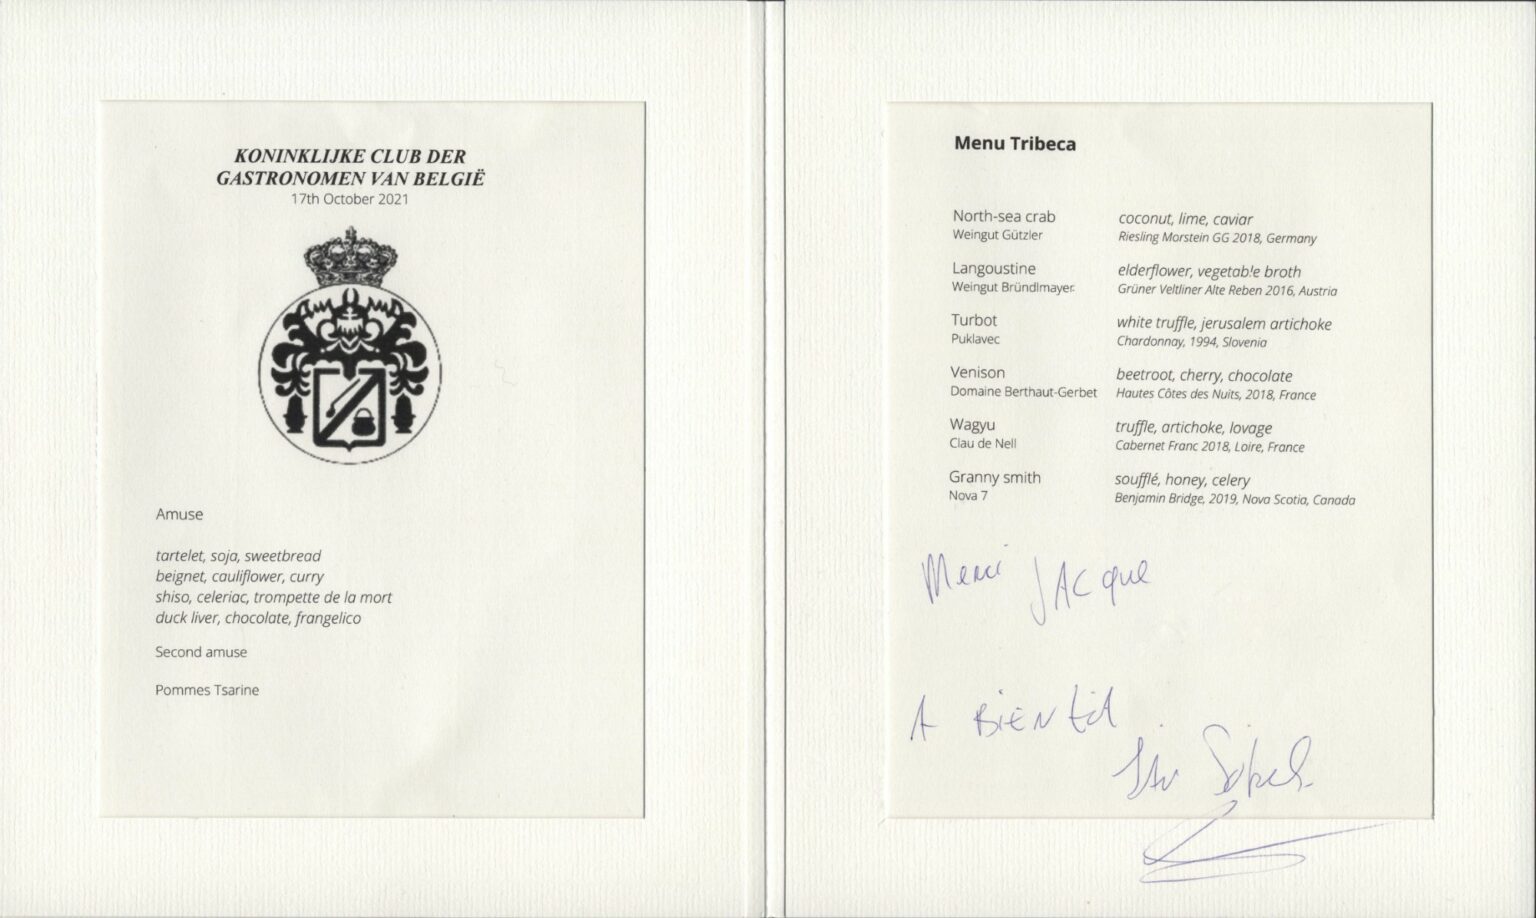 KONINKLIJKE CLUB DER
GASTRONOMEN VAN BELGIË
17th October 2021
Amuse
tartelet, soja, sweetbread
beignet, cauliflower, curry
shiso, celeriac, trompette de la mort
duck liver, chocolate, frangelico
Second amuse
Pommes Tsarine
Menu Tribeca
North-sea crab coconut, lime, caviar
Weingut Gützler Riesling Morstein GG 2018, Germany
Langoustine elderflower, vegetable broth
Weingut Bründlmayer Grüner Veltliner Alte Reben 2016, Austria
Turbot white truffle, jerusalem artichoke
Puklavec Chardonnay, 1994, Slovenia
Venison beetroot, cherry, chocolate
Domaine Berthaut-Gerbet Hautes Côtes des Nuits, 2018, France
Wagyu truffle, artichoke, lovage
Clau de Nell Cabernet Franc 2018, Loire, France
Granny smith soufflé, honey, celery
Nova 7 Benjamin Bridge, 2019, Nova Scotia, Canada
Merci JACque
A BiENtôt